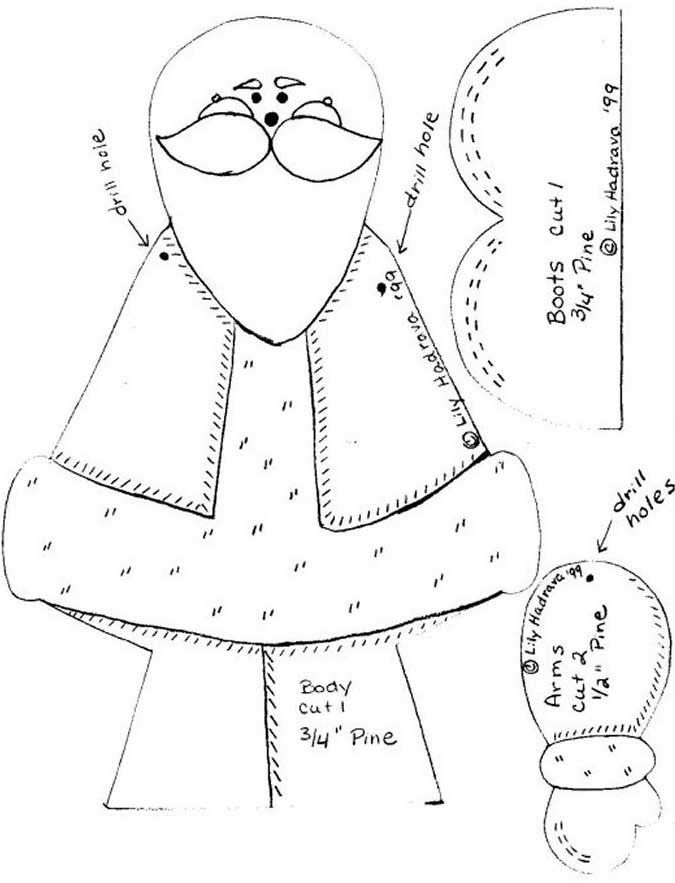 drill hole
drill hole
© Lily Hadrava '99
Boots cut 1
3/4" Pine
© Lily Hadrava '99
drill
holes
© Lily Hadrava '99
Arms
cut 2
1/2" Pine
Body
cut 1
3/4" Pine